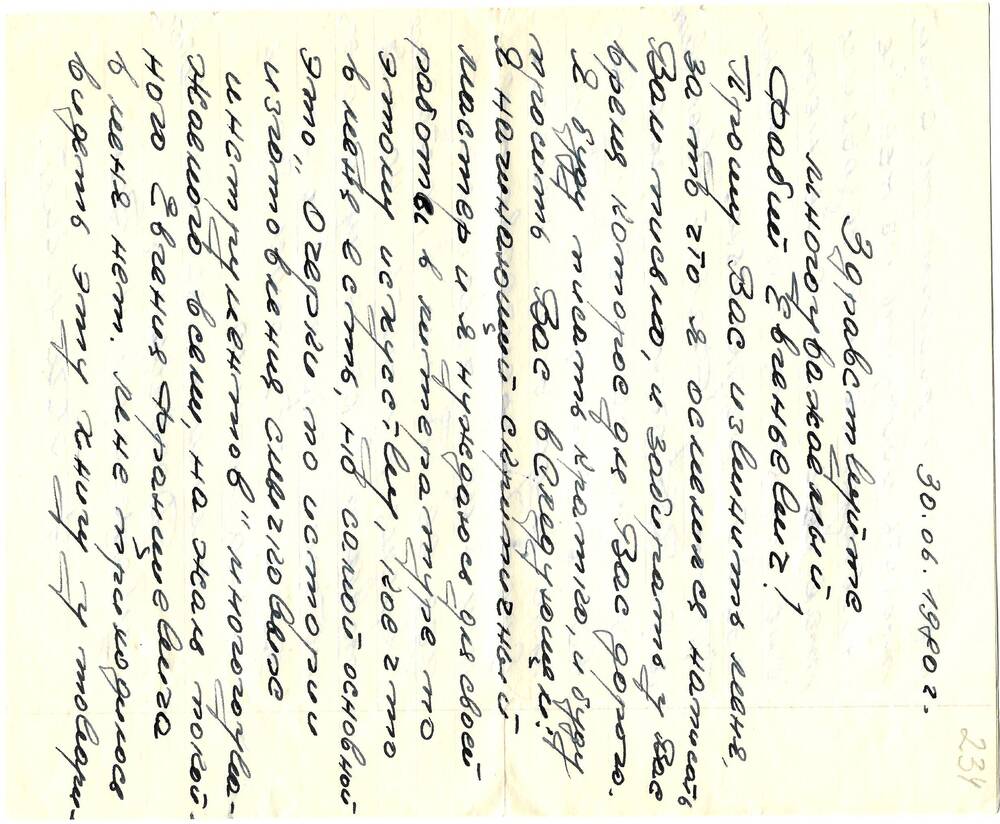 234
30.06.1980 г.
Здравствуйте
многоуважаемый
Фабий Евгеньевич!
Прошу Вас извинить меня,
за то что я осмелился написать
Вам письмо, и забирать у Вас
время которое для Вас дорого.
Я буду писать кратко, и буду
просить Вас в следующем:
Я начинающий скрипичный
мастер и я нуждаюсь для своей
работы в литературе по
этому искусству, кое что
в меня есть, но самой основной
это „Очерки по истории
изготовления смычковых
инструментов" многогоува-
жаемого всеми, на жаль покой-
ного Евгения Францевича
в меня нет. Мне приходилось
видеть эту книгу у товари-